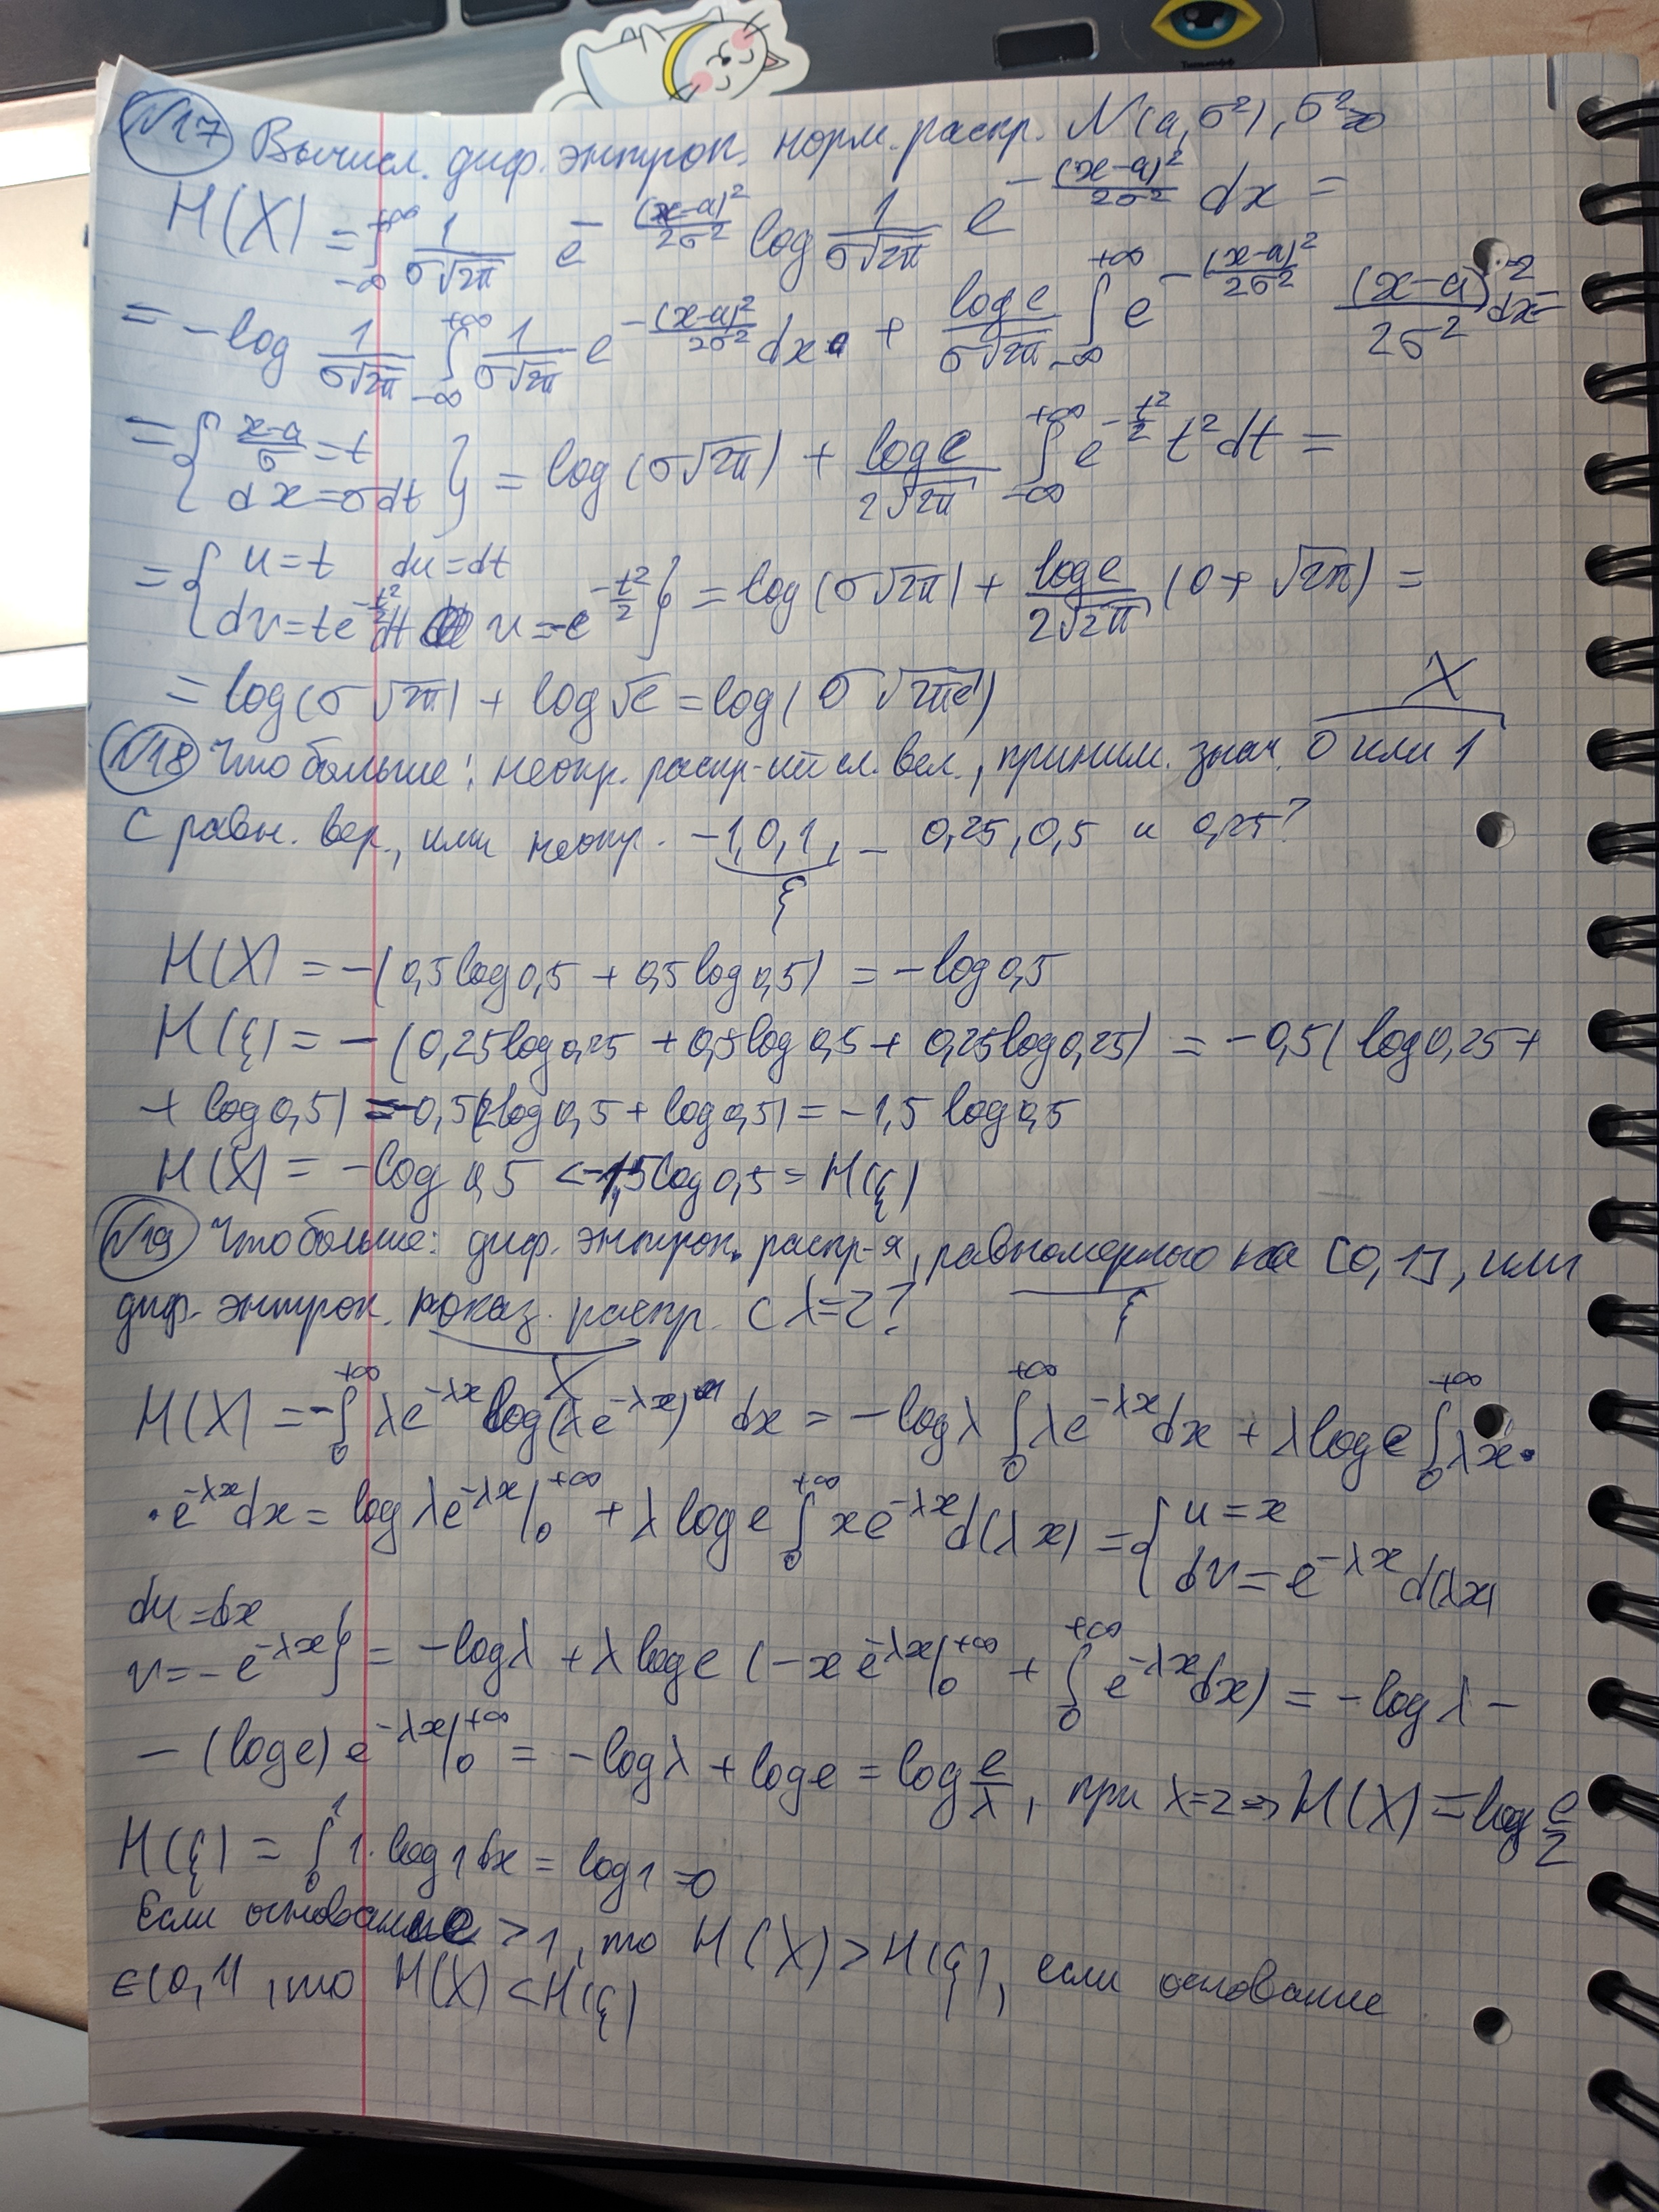 №17 Вычисл. диф. энтроп. норм. распр. N(a, σ²), σ²>0
H(X) = ∫_{-∞}^{+∞} 1/(σ√2π) e^{-(x-a)²/2σ²} log 1/(σ√2π) e^{-(x-a)²/2σ²} dx =
= -log 1/(σ√2π) ∫_{-∞}^{+∞} 1/(σ√2π) e^{-(x-a)²/2σ²} dx + log e/(σ√2π) ∫_{-∞}^{+∞} e^{-(x-a)²/2σ²} (x-a)²/2σ² dx =
= { (x-a)/σ = t, dx = σdt } = log(σ√2π) + log e/(2√2π) ∫_{-∞}^{+∞} e^{-t²/2} t² dt =
= { u = t du = dt, dv = te^{-t²/2} dt v = -e^{-t²/2} } = log(σ√2π) + log e/(2√2π) (0 + √2π) =
= log(σ√2π) + log√e = log(σ√2πe)
X
№18 Что больше: неопр. распр-ий сл. вел., приним. знач. 0 или 1
с равн. вер., или неопр. -1, 0, 1, _ 0,25, 0,5 и 0,25?
ξ
H(X) = -(0,5log0,5 + 0,5log0,5) = -log0,5
H(ξ) = -(0,25log0,25 + 0,5log0,5 + 0,25log0,25) = -0,5(log0,25+
+ log0,5) = -0,5(2log0,5 + log0,5) = -1,5log0,5
H(X) = -log0,5 < -1,5log0,5 = H(ξ)
№19 Что больше: диф. энтроп. распр-я, равномерного на [0,1], или
диф. энтроп. показ. распр. с λ=2?
ξ
X
H(X) = -∫_0^{+∞} λe^{-λx} log(λe^{-λx}) dx = -logλ ∫_0^{+∞} λe^{-λx}dx + λ log e ∫_0^{+∞} λx·
·e^{-λx}dx = log λe^{-λx}|_0^{+∞} + λ log e ∫_0^{+∞} xe^{-λx}d(λx) = { u = x, dv = e^{-λx}d(λx)
du = dx
v = -e^{-λx} } = -logλ + λ log e (-xe^{-λx}|_0^{+∞} + ∫_0^{+∞} e^{-λx}dx) = -logλ -
- (log e) e^{-λx}|_0^{+∞} = -logλ + log e = log e/λ, при λ=2 ⇒ H(X) = log e/2
H(ξ) = ∫_0^1 1·log1dx = log1 = 0
Если основание >1, то H(X) > H(ξ), если основание
∈(0,1), то H(X) < H(ξ)